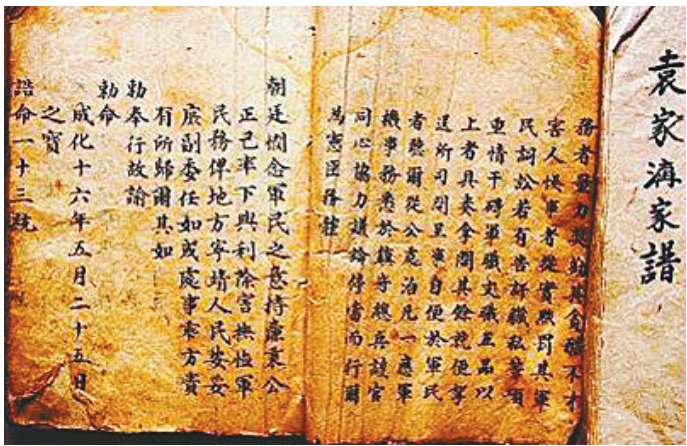 袁家海家譜
務者量力獎勸其貪酷不才
害人悞事者從實黜罰其軍
民詞訟若有告訐職私等項
重情干碍軍職文職五品以
上者具奏拿問其餘就便拿
送所司問呈事自便於軍民
者聽爾從公處治凡一應軍
機事務悉於鎮守總兵議官
同心協力議論停當而行爾
為憲臣務體
朝廷憫念軍民之意持廉秉公
正己率下興利除害撫恤軍
民務俾地方寧靖人民安妥
庶副委任如或處事乖方責
有所歸爾其如
勅奉行故諭
勅命
成化十六年五月二十五日
之寶
誥命一十三